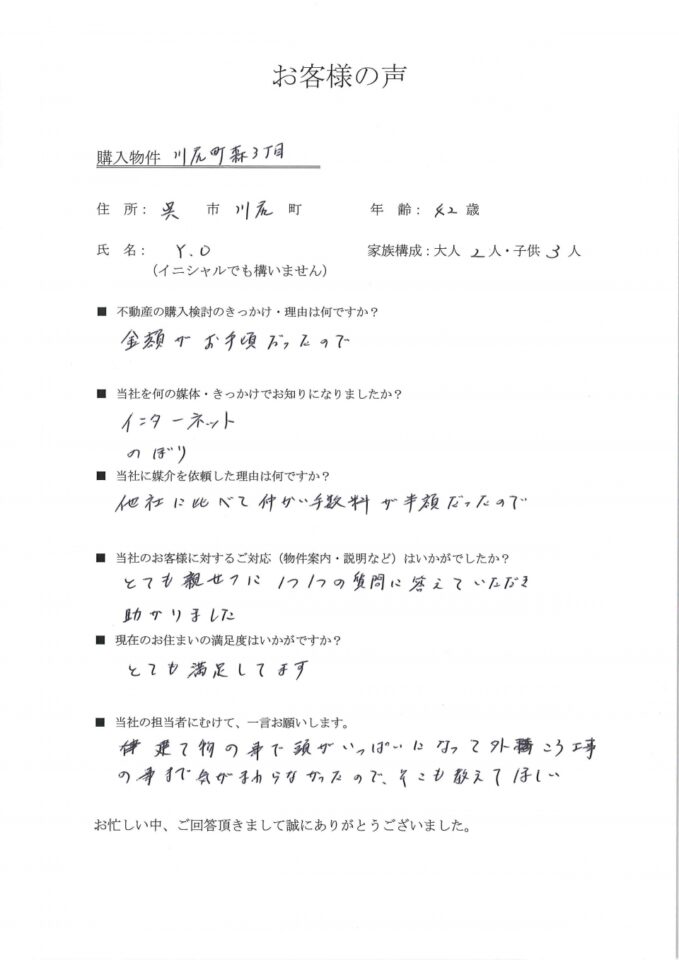 お客様の声
購入物件 川尻町森3丁目
住 所： 呉 市 川尻 町 年 齢： 42 歳
氏 名： Y.O 家族構成：大人 2 人・子供 3 人
（イニシャルでも構いません）
■ 不動産の購入検討のきっかけ・理由は何ですか？
金額がお手頃だったので
■ 当社を何の媒体・きっかけでお知りになりましたか？
インターネット
のぼり
■ 当社に媒介を依頼した理由は何ですか？
他社に比べて仲かい手数料が半額だったので
■ 当社のお客様に対するご対応（物件案内・説明など）はいかがでしたか？
とても親せつに 1つ1つの質問に答えていただき
助かりました
■ 現在のお住まいの満足度はいかがですか？
とても満足してます
■ 当社の担当者にむけて、一言お願いします。
建て物の事で頭がいっぱいになって外構ころ工事
の事まで気がまわらなかったので、そこも教えてほしい
お忙しい中、ご回答頂きまして誠にありがとうございました。